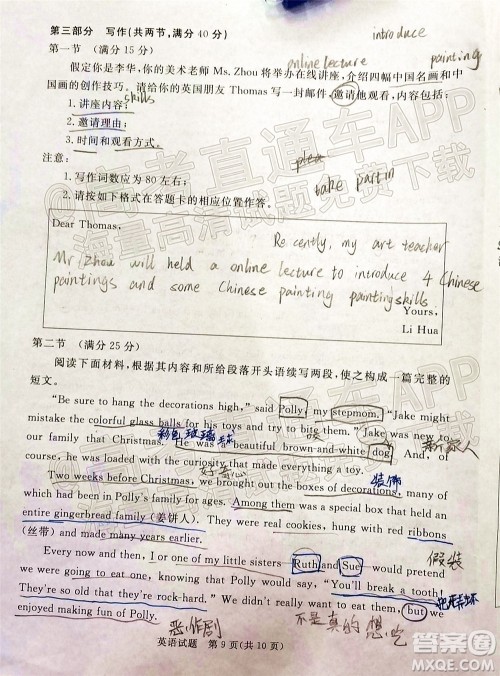 第三部分 写作(共两节,满分40分)
introduce
第一节 (满分15分)
online lecture painting
假定你是李华,你的美术老师 Ms. Zhou 将举办在线讲座,介绍四幅中国名画和中
国画的创作技巧。请给你的英国朋友 Thomas 写一封邮件,邀请他观看,内容包括:
1. 讲座内容; skills
2. 邀请理由;
3. 时间和观看方式。
注意:
1. 写作词数应为80左右;
take partin
2. 请按如下格式在答题卡的相应位置作答。
Dear Thomas,
Recently, my art teacher
Mr Zhou will held a online lecture to introduce 4 Chinese
paintings and some Chinese painting paintingskills.
Yours,
Li Hua
第二节 (满分25分)
阅读下面材料,根据其内容和所给段落开头语续写两段,使之构成一篇完整的
短文。
"Be sure to hang the decorations high," said Polly, my stepmom. "Jake might
mistake the colorful glass balls for his toys and try to bite them." Jake was new to
彩色玻璃球 新家人
our family that Christmas. He was a beautiful brown-and-white dog. And, of
course, he was loaded with the curiosity that made everything a toy.
好奇 装饰
Two weeks before Christmas, we brought out the boxes of decorations, many of
which had been in Polly's family for ages. Among them was a short string with an
entire gingerbread family (姜饼人). They were real cookies, hung with red ribbons
(丝带) and made many years earlier.
假装
Every now and then, I or one of my little sisters Ruth and Sue would pretend
we were going to eat one, knowing that Polly would say, "You'll break a tooth!
They're so old that they're rock-hard." We didn't really want to eat them, but we
enjoyed making fun of Polly.
恶作剧 不是真的想吃
英语试题 第9页(共10页)
高考直通车APP
海量高清试题免费下载
答案圈
MXQE.COM